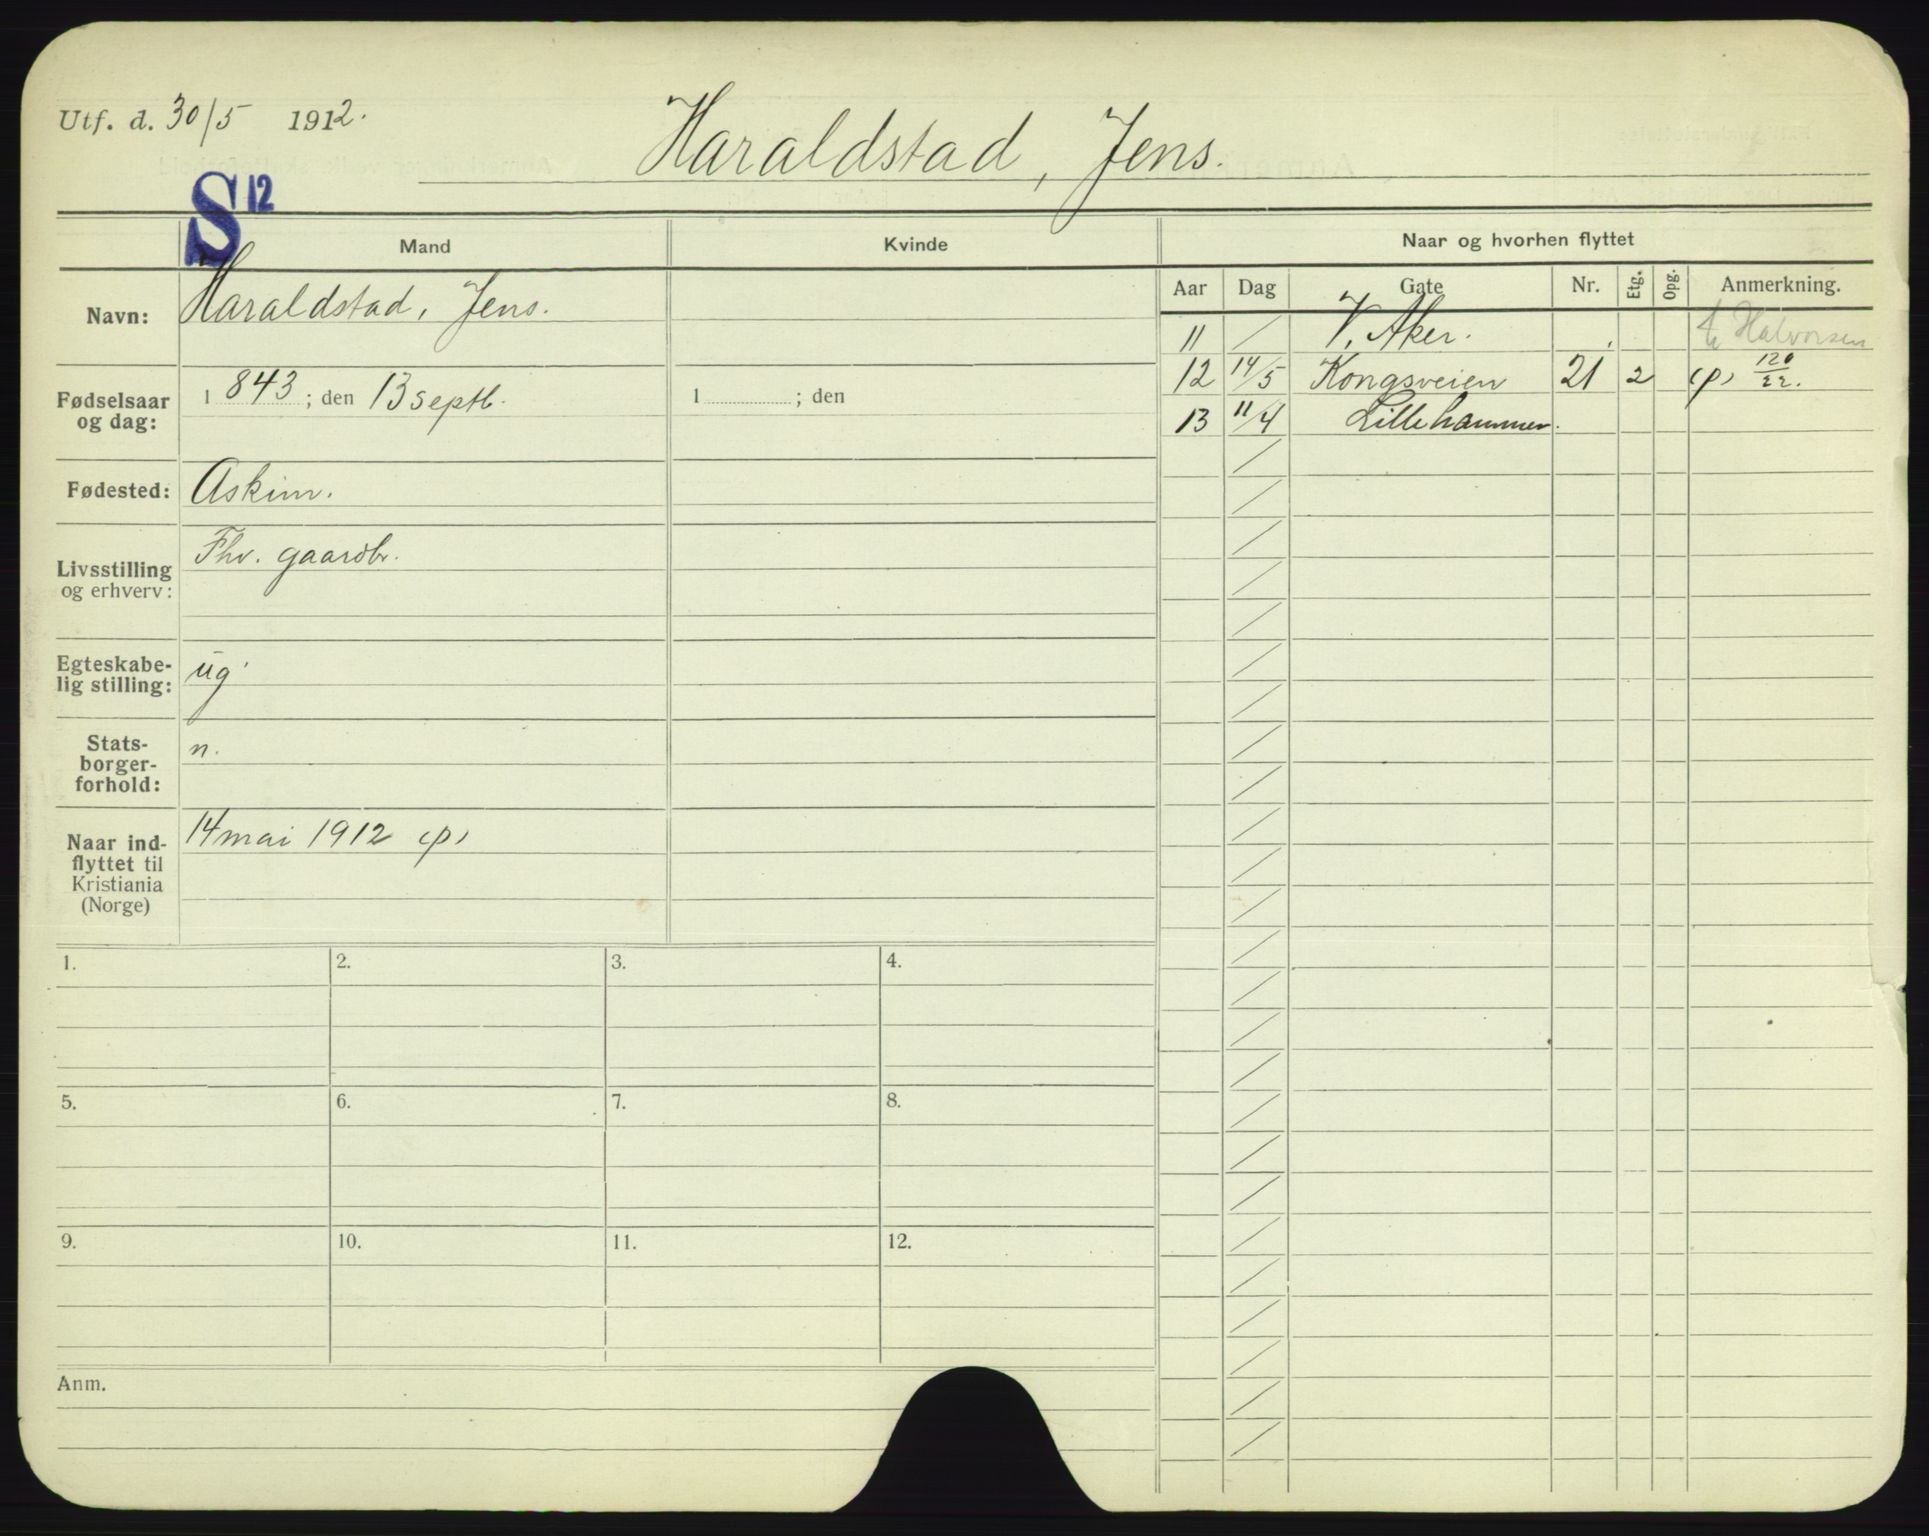 Utf. d. 30/5 1912.
Haraldstad, Jens.
S 12
Mand
Kvinde
Navn:
Haraldstad, Jens.
Fødselsaar
og dag:
1843; den 13 septb.
1 ; den
Fødested:
Askim.
Livsstilling
og erhverv:
Fhv. gaardbr.
Egteskabe-
lig stilling:
ug.
Stats-
borger-
forhold:
n.
Naar ind-
flyttet til
Kristiania
(Norge)
14 mai 1912 (p)
1. 2. 3. 4.
5. 6. 7. 8.
9. 10. 11. 12.
Anm.
Naar og hvorhen flyttet
Aar Dag Gate Nr. Etg. Opg. Anmerkning.
11 / V. Aker. Halvorsen
12 14/5 Kongsveien 21 2 (p) 120/22.
13 11/4 Lillehammer.